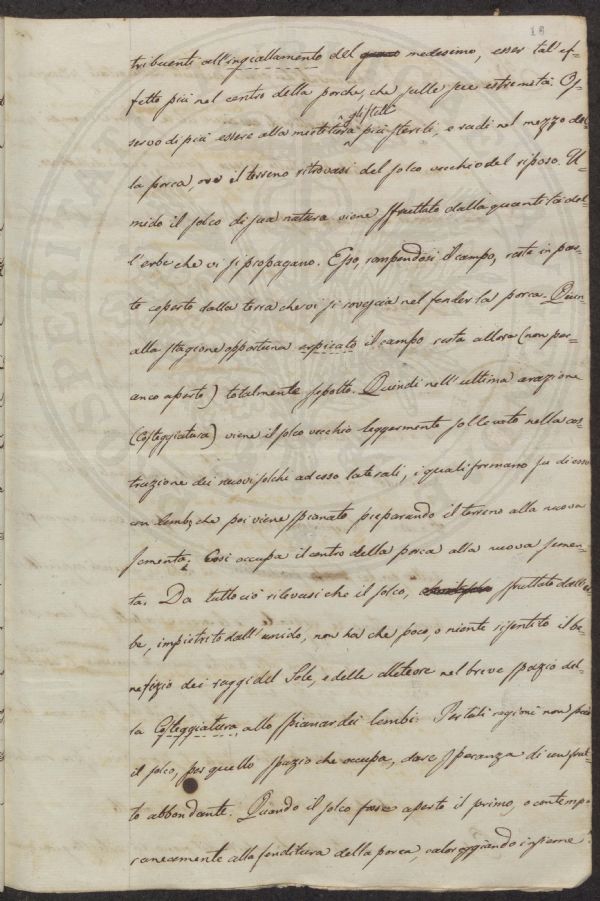 18
tribuenti all'ingiallamento del medesimo, esser tal'ef=
fetto più nel centro della porche, che sulle sue estremità. Os=
servo di più essere alla mietitura gli steli più sterili, e radi nel mezzo del=
la porca, ove il terreno ritrovasi del solco vecchio del riposo. U=
mido il solco di sua natura viene sfruttato dalla quantità del=
l'erbe che vi si propagano. Esso, rompendosi il campo, resta in par=
te coperto dalla terra che vi si rovescia nel fender la porca. Quin=
alla stagione opportuna erpicato il campo resta allora (non per=
anco aperto) totalmente sepolto. Quindi nell'ultima arazione
(Costeggiatura) viene il solco vecchio leggermente sollevato nella cos=
truzione dei nuovi solchi ad esso laterali, i quali formano su di esso
un lembo, che poi viene spianato preparando il terreno alla nuova
sementa; Così occupa il centro della porca alla nuova semen=
ta. Da tutto ciò rilevasi che il solco, sfruttato dall'er=
be, impietrito dall'umido, non ha che poco, o niente risentito il be=
nefizio dei raggi del Sole, e delle Meteore nel breve spazio del=
la Costeggiatura allo spianar dei lembi. Per tali ragioni non può
il solco, per quello spazio che occupa, dare speranza di un frut=
to abbondante. Quando il solco fosse aperto il primo, o contempo=
raneamente alla fenditura della porca, insieme